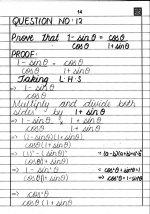 14
QUESTION NO: 12
Prove that 1 - sinθ = cosθ
cosθ 1 + sinθ
PROOF:
1 - sinθ = cosθ
cosθ 1 + sinθ
Taking L.H.S
=> 1 - sinθ
cosθ
Multiply and divide both
sides by 1 + sinθ
=> 1 - sinθ × 1 + sinθ
cosθ 1 + sinθ
=> (1 - sinθ)(1 + sinθ)
cosθ(1 + sinθ)
=> (1)² - (sinθ)² ∵ (a-b)(a+b) = a²-b²
cosθ(1 + sinθ)
=> 1 - sin²θ ∵ cos²θ + sin²θ = 1
cosθ(1 + sinθ) => cos²θ = 1 - sin²θ
=> cos²θ
cosθ(1 + sinθ)